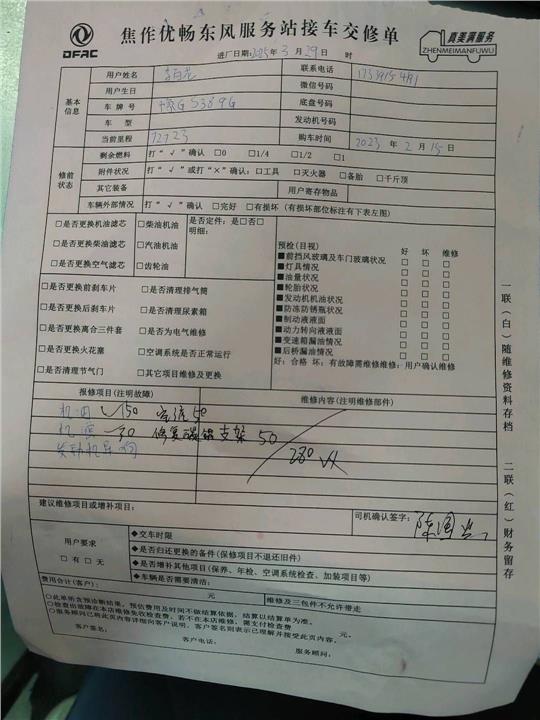 DFAC
焦作优畅东风服务站接车交修单
真美满服务
ZHENMEIMANFUWU
进厂日期: 2025年 3 月 29日 时
基本信息
用户姓名
联系电话
用户生日
微信号码
车牌号
底盘号码
车型
发动机号码
当前里程 72723
购车时间 2023 年 2 月 15日
修前状态
剩余燃料 打“√”确认 □0 □1/4 □1/2 □1
附件状况 打“√”或打“×”确认: □工具 □灭火器 □备胎 □千斤顶
其它装备 用户寄存物品
车辆外部情况 打“√”确认 □完好 □有损坏 (有损坏部位标注有下表左图)
□是否更换机油滤芯 □柴油机油 是否定件: 是□否□
明细:
□是否更换柴油滤芯 □汽油机油
□是否更换空气滤芯 □齿轮油
□是否更换前刹车片 □是否清理排气筒
□是否更换后刹车片 □是否清理尿素箱
□是否更换离合三件套 □是否为电气维修
□是否更换火花塞 □空调系统是否正常运行
□是否清理节气门 □其它项目维修及更换
预检(目视) 好 坏 维修
■前挡风玻璃及车门玻璃状况 □ □ □
■灯具情况 □ □ □
■油量状况 □ □ □
■轮胎状况 □ □ □
■发动机机油状况 □ □ □
■防冻防锈瓶状况 □ □ □
■制动液液面 □ □ □
■动力转向液液面 □ □ □
■变速箱漏油情况 □ □ □
■后桥漏油情况 □ □ □
好: 合格 坏: 有故障需维修维修: 用户确认维修
报修项目(注明故障) 维修内容(注明维修部件)
机油 150 50
机滤 30 修复 支架 50
280
建议维修项目或增补项目:
司机确认签字:
用户要求
□有 □无
◆交车时限
◆是否归还更换的备件(保修项目不退还旧件)
◆是否增补其他项目(保养、年检、空调系统检查、加装项目等)
◆车辆是否需要清洁:
费用合计(客户): 元. 维修及三包件不允许带走
○此单所含预诊断结果, 预估费用及时间不做结算依据, 结算以结算单为准。
○检查出故障在本店维修免收检查费, 若不在本店维修, 需支付检查费 元.
○服务顾问已将此页内容详细向客户说明, 客户签名则表示已理解并接受此页内容。
客户签名: 客户电话: 服务顾问:
一联(白)随维修资料存档
二联(红)财务留存